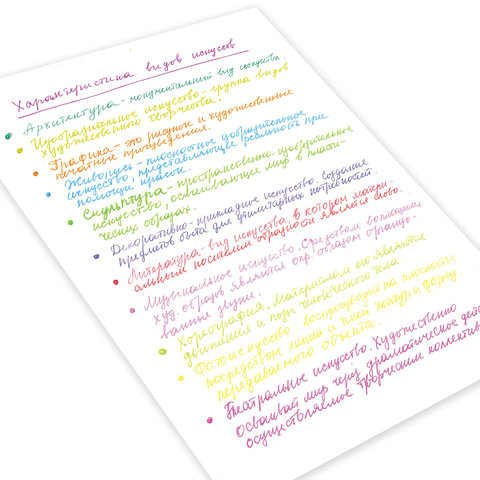 Характеристика видов искусств
Архитектура - монументальный вид искусства.
Изобразительное искусство - группа видов
художественного творчества.
Графика - это рисунок и художественные
печатные произведения.
Живопись - плоскостное изобразительное
искусство, представляющее реальность при
помощи красок.
Скульптура - пространственно-изобразительное
искусство, осваивающее мир в пласти-
ческих образах.
Декоративно-прикладное искусство. Создание
предметов быта для утилитарных потребностей.
Литература - вид искусства, в котором матери-
альным носителем образности является слово.
Музыкальное искусство. Средством воплощения
худ. образов являются опр. образом организо-
ванные звуки.
Хореография. Материалом её являются
движения и позы человеческого тела.
Фотоискусство: воспроизводит на плоскости
посредством линий и теней контур и форму
передаваемого объекта.
Театральное искусство. Художественно
осваивает мир через драматическое дейс
осуществляемое творческим коллектив